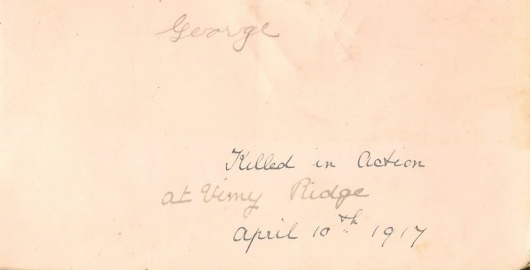 George
Killed in Action
at Vimy Ridge
April 10th 1917